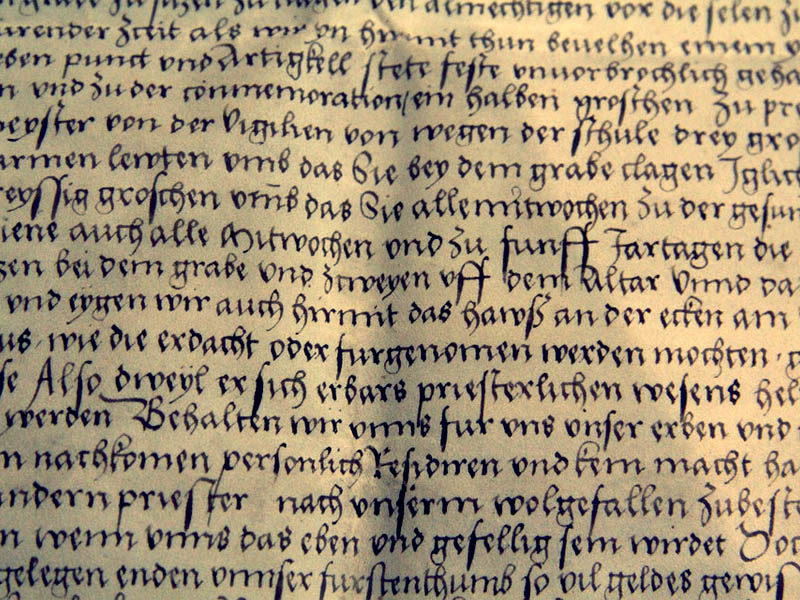 zu den almechtigen vor die selen
zceit als wir yn hirmit thun beuelhen einem
eben punct vnd Artigkell stete feste vnuorbrochlich geha
n vnd zu der commemoration / ein halben groschen zu pre
von der Vigilien von wegen der schule drey gro
armen lewten vmb das Sie bey dem grabe clagen Iglich
reyssig groschen vmb das Sie alle mitwochen zu der gesun
iene auch alle Mitwochen vnd zu funff Jartagen die
zen bei dem grabe vnd zcweyen vff dem Altar Vnnd da
vnd eygen wir auch hirmit das hawß an der ecken am
us wie die erdacht oder furgenomen werden mochten
se Also dweyl er sich erbars priesterlichen wesens hel
werden Behalten wir vnns fur vns vnser erben vnd
n nachkomen personlich Residiren vnd kein macht ha
andern priester nach vnserm wolgefallen zubeste
n wenn vnns das eben vnd gefellig sein wirdet Doc
gelegen enden vnnser furstenthumb so vil geldes gewis